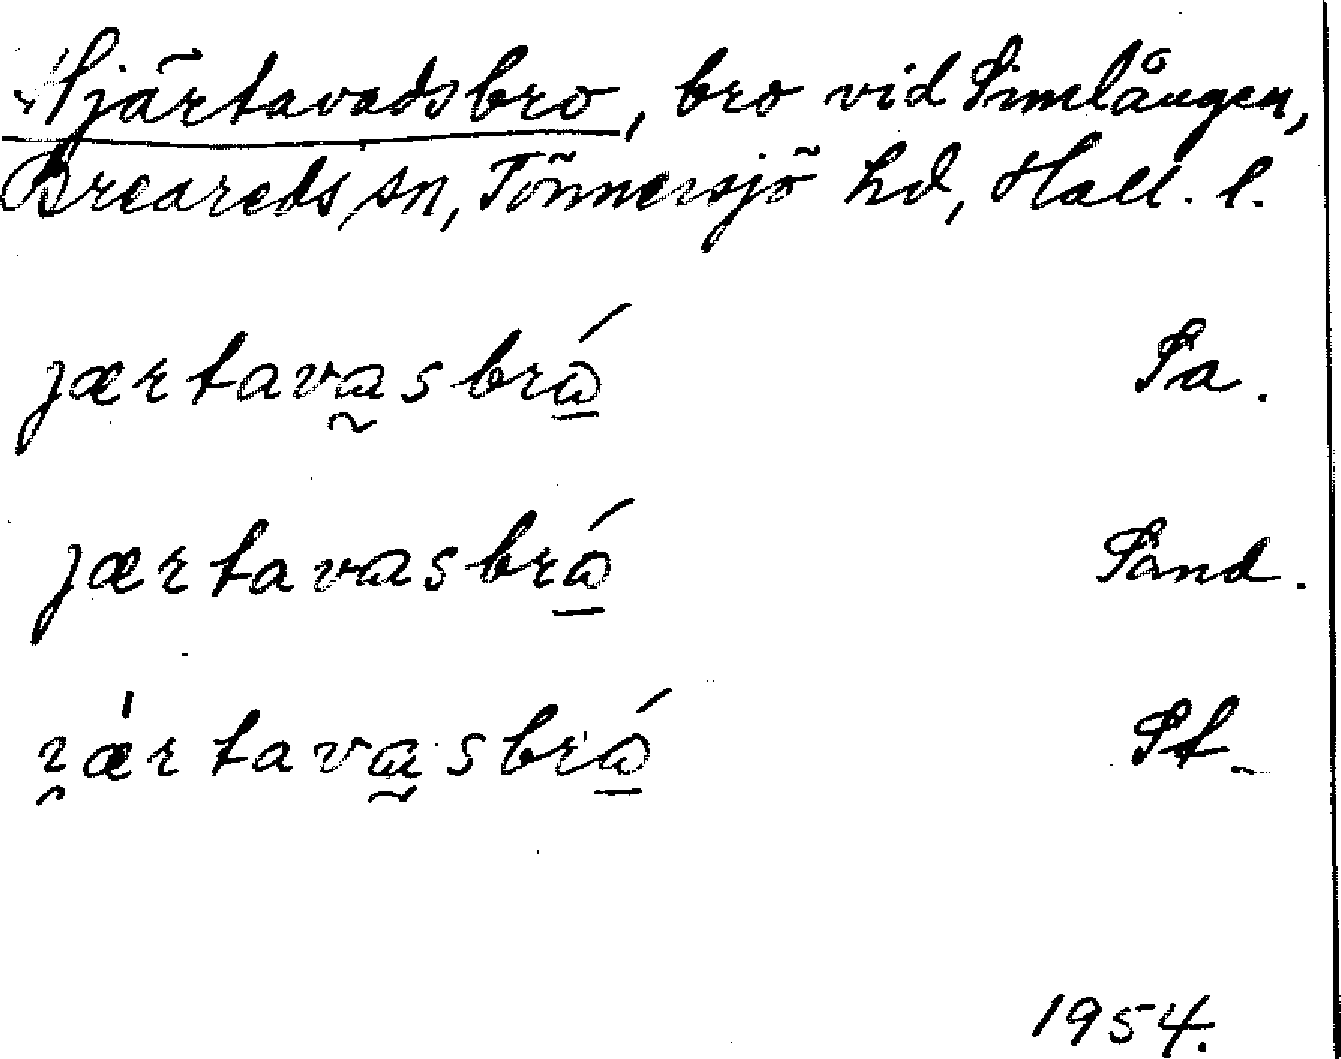 Hjärtavadsbro, bro vid Simlången,
Breareds sn, Tönnersjö hd, Hall. l.
jærtavasbrá Sa.
jærtavasbrá Sand.
ɿæ̀rtavasbrá St.
1954.